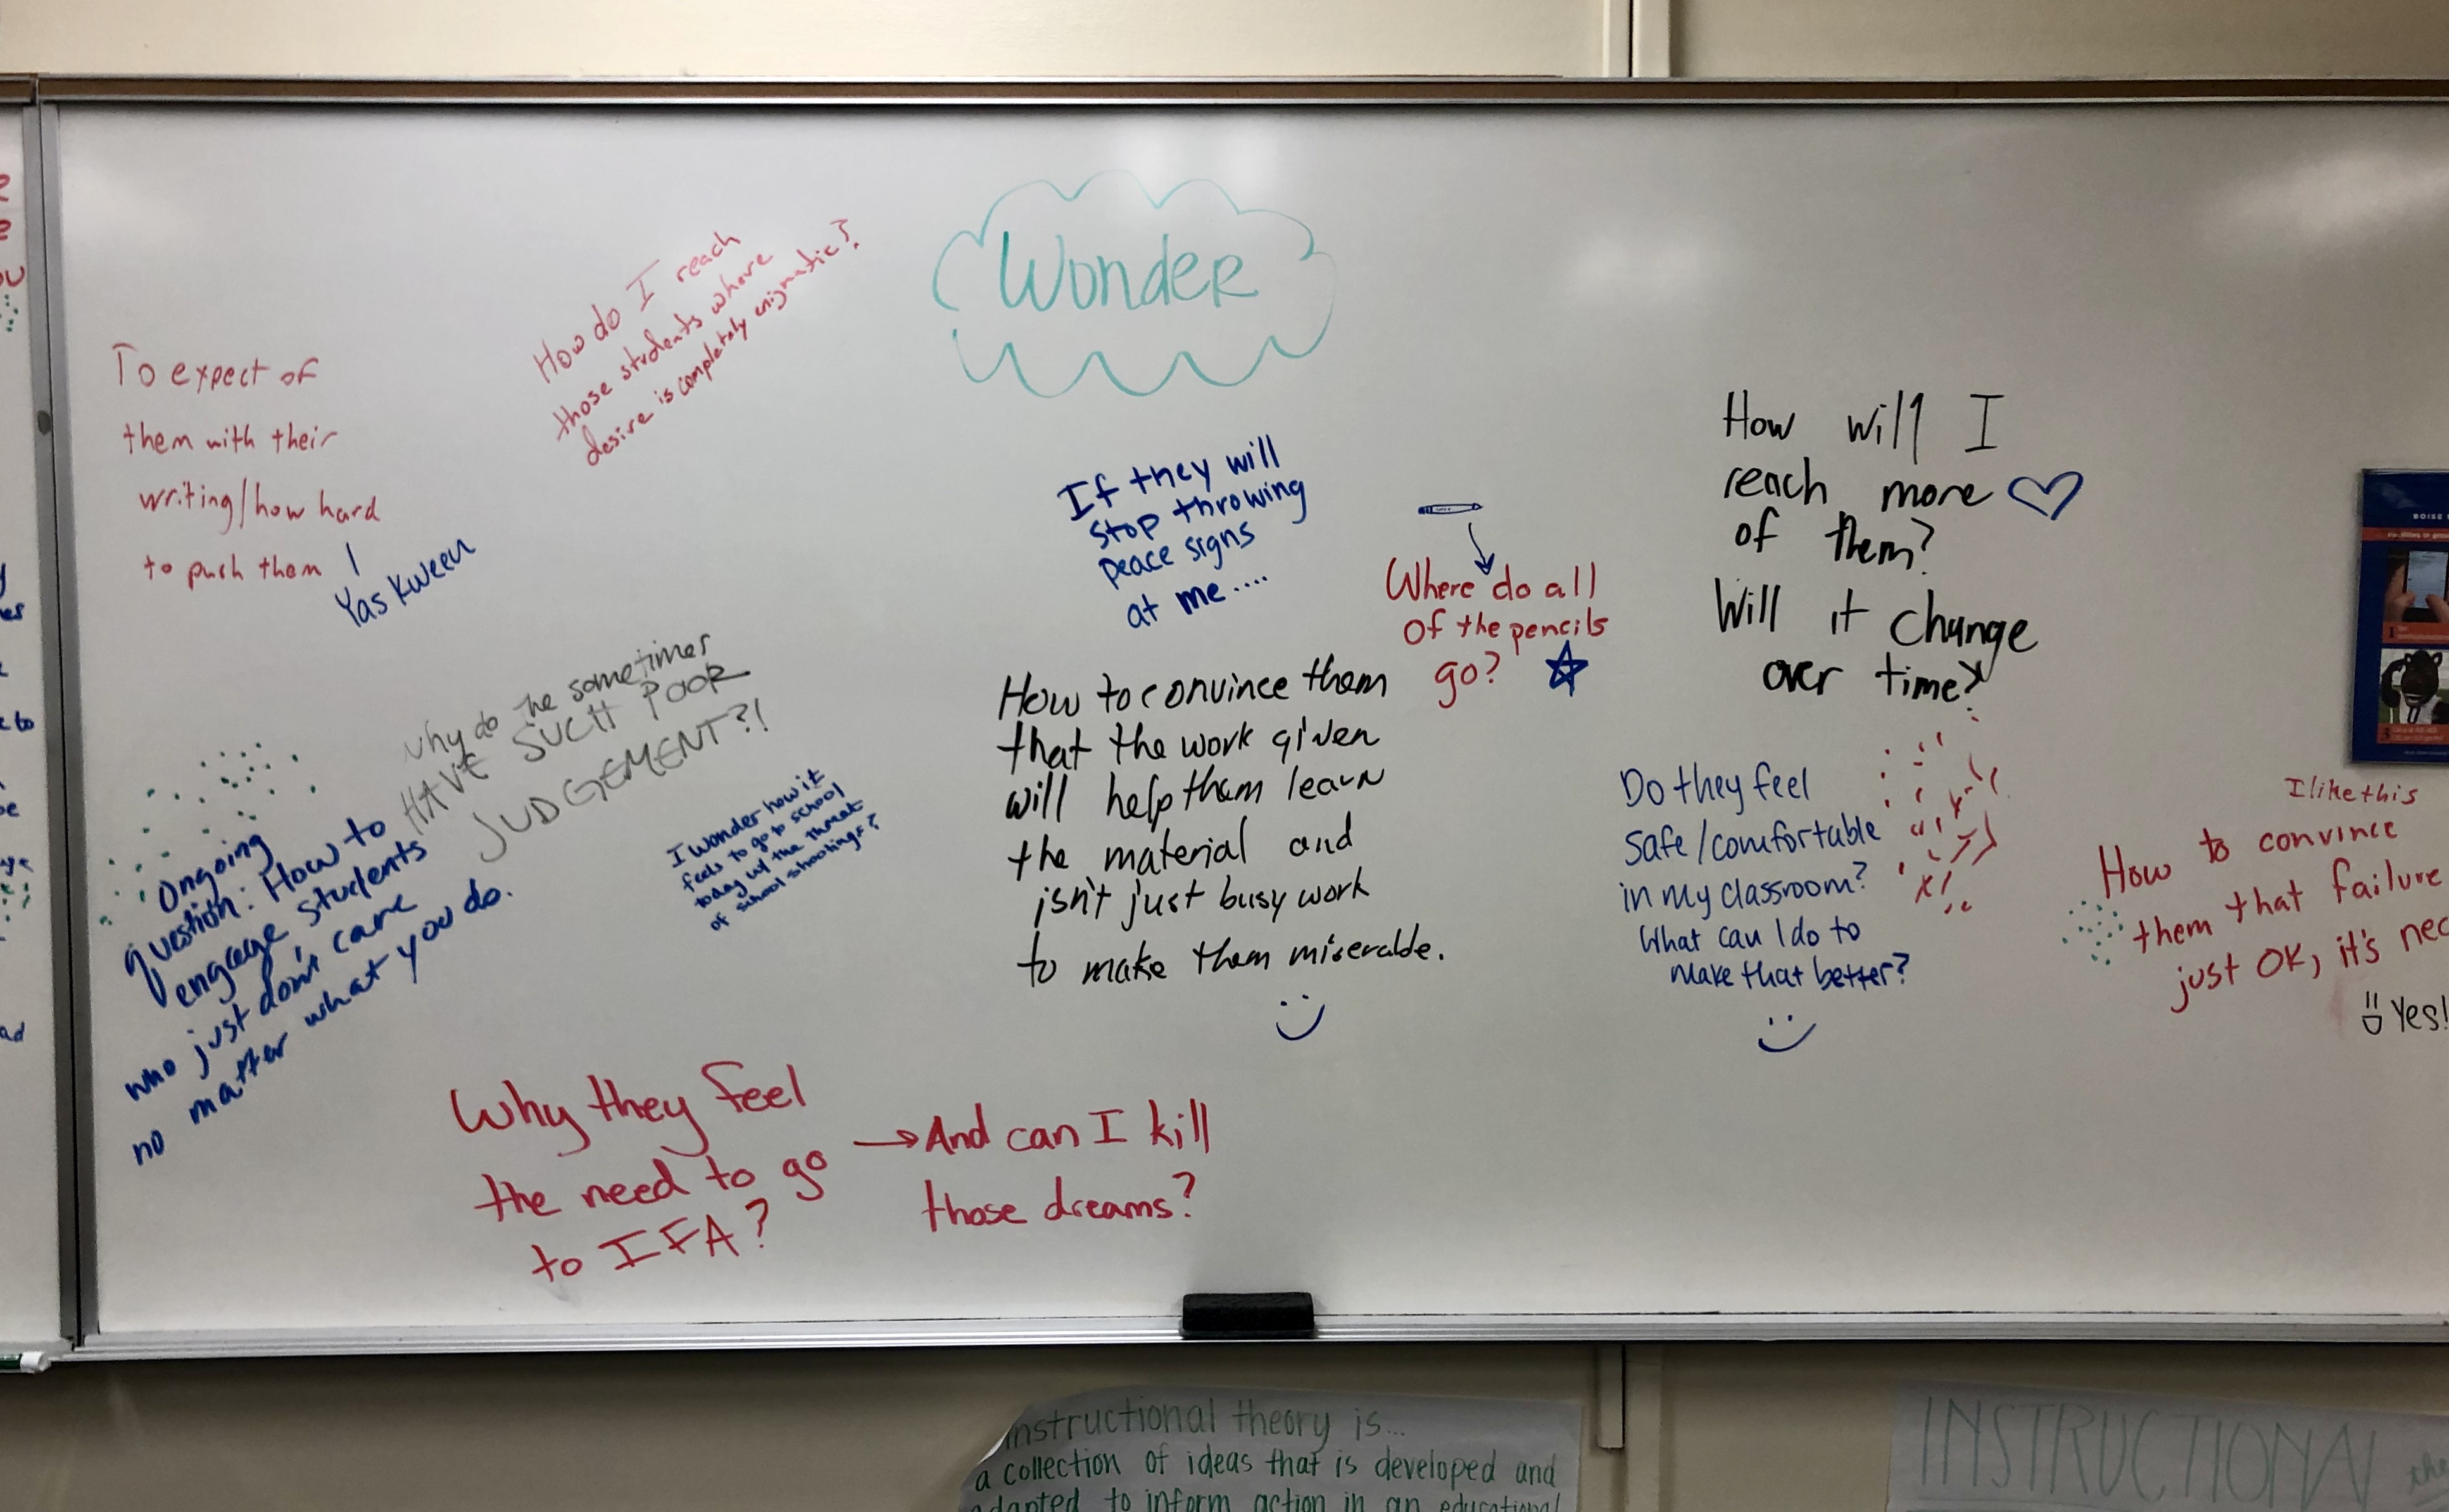 Wonder
How do I reach
those students where
desire is completely enigmatic?
To expect of
them with their
writing/how hard
to push them
Yas Kween
If they will
stop throwing
peace signs
at me....
Where do all
of the pencils
go?
How will I
reach more
of them?
Will it change
over time?
why do he sometimes
HAVE SUCH POOR
JUDGEMENT?!
Ongoing
question: How to
engage students
who just don't care
no matter what you do.
I wonder how it
feels to go to school
today w/ the threat
of school shootings?
How to convince them
that the work given
will help them learn
the material and
isn't just busy work
to make them miserable.
Do they feel
safe/comfortable
in my classroom?
What can I do to
make that better?
I like this
How to convince
them that failure
just OK, it's nec
Yes!
Why they feel
the need to go
to IFA?
And can I kill
those dreams?
instructional theory is...
a collection of ideas that is developed and
adapted to inform action in an educational
INSTRUCTIONAL